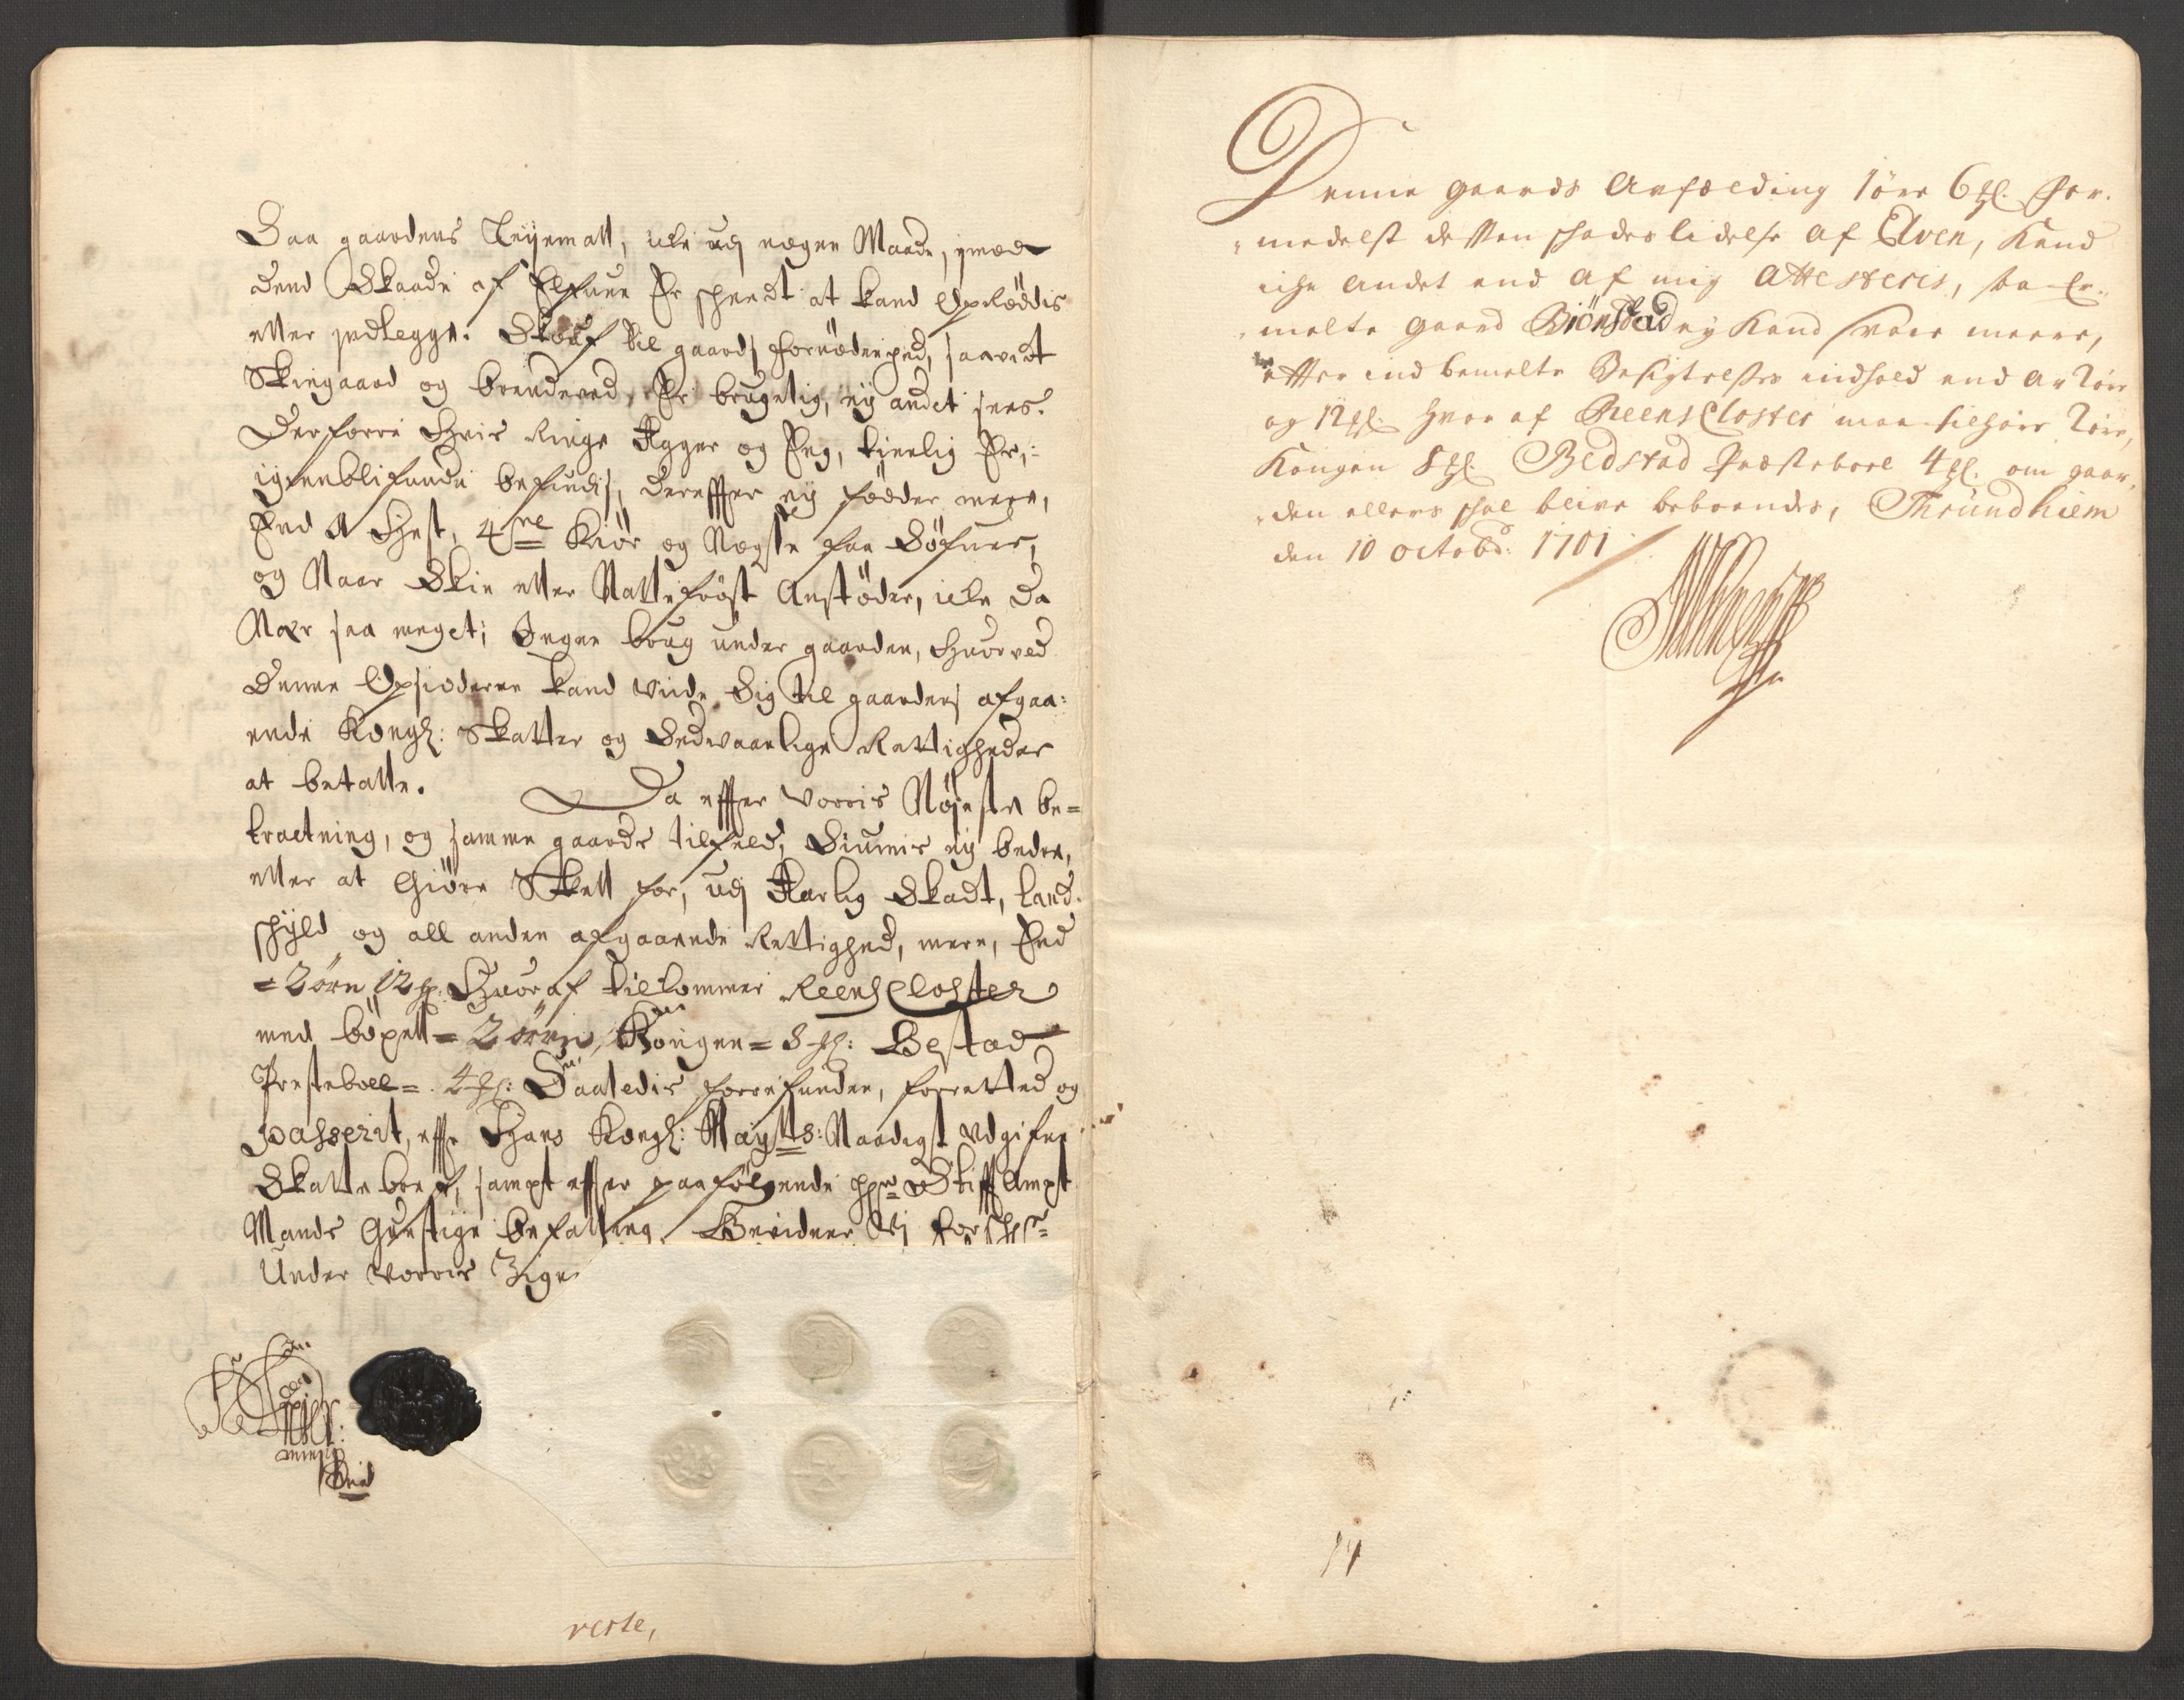 Saa gaardens Leyemall, icke udj nogen Maade, imod
dend Skaade af Elfuen Er scheedt at kand Oprøddis
eller jedlegge. Skouf til gaards fornødenhed, saavidt
Skiegaard og brendeved, Er brugelig, ey andet sees.
Derforre Hvis Ringe Agger og Eng, kienlig Er,
igienblifuende befindis, derefter ey fødder mere,
End 1 Hest, 4re Kiør og Nogle faa Søfuer,
og Naar Skie eller Nattefröst Anstöder, icke da
Naar saa meget; Ingen brug under gaarden, Huorved
denne Opsidderen kand viide Sig til gaardens afgaa:
ende Kongl: Skatter og Sedvaanlige Rettigheder
at betalle. Da effter vorris Nøjeste be=
tractning, og samme gaards tilfeld, Siunnis ey bedre,
eller at Giöre Skell for, udj Aarlig Skadt, land-
schyld og all anden afgaaende Rettighed, mere, End
= 2 ören 12 Huoraf tilkommer Reens Closter
med böxell = 2 ören, Kongen = 8 Bestad
Presteboll = 4 Saaledis forrefunden, forretted og
passerit, effter Hans Kongl: Mayts: Naadigst Udgifne
Skattebref, sampt effter paafölgende Stiffampt
Mands Gunstige befalling. Bevidner Vj
Under vorris Zigne
reste,
Denne gaards Anfælding 1 öre 6 For-
medelst dessen schades lidelse af Elven, kand
iche andet end af mig Attesteris, saa Er-
melte gaard Biönstad ey kand svare meere,
effter indbemelte Besigtelses indhold end a 2 öre
og 12 hvor af Reens Closter maa tilhøre 2 öre,
Kongen 8 Bedstad Præsteboel 4 om gaar-
den ellers schal blive beboendes, Thrundhiem
den 10 octobr: 1701
14